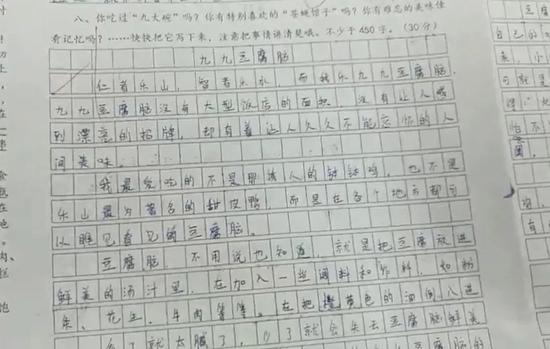 八、你吃过“九大碗”吗?你有特别喜欢的“苍蝇馆子”吗?你有难忘的美味佳
肴记忆吗?……快快把它写下来,注意把事情讲清楚哦。不少于450字。(30分)
九九豆腐脑
仁者乐山,智者乐水,而我乐九九豆腐脑。
九九豆腐脑没有大型饭店的面积,没有让人感
到漂亮的招牌,却有着让人久久不能忘怀的人
间美味。
我最爱吃的不是那诱人的钵钵鸡,也不是
乐山最为著名的甜皮鸭,而是在各个地方都可
以随见看见的豆腐脑。
豆腐脑,不用说也知道,就是把豆腐放进
鲜美的汤汁里,在加入一些调料和作料,如粉
条、花生、牛肉等等。在把橙黄色的油倒入进
就会失去豆腐脑鲜美